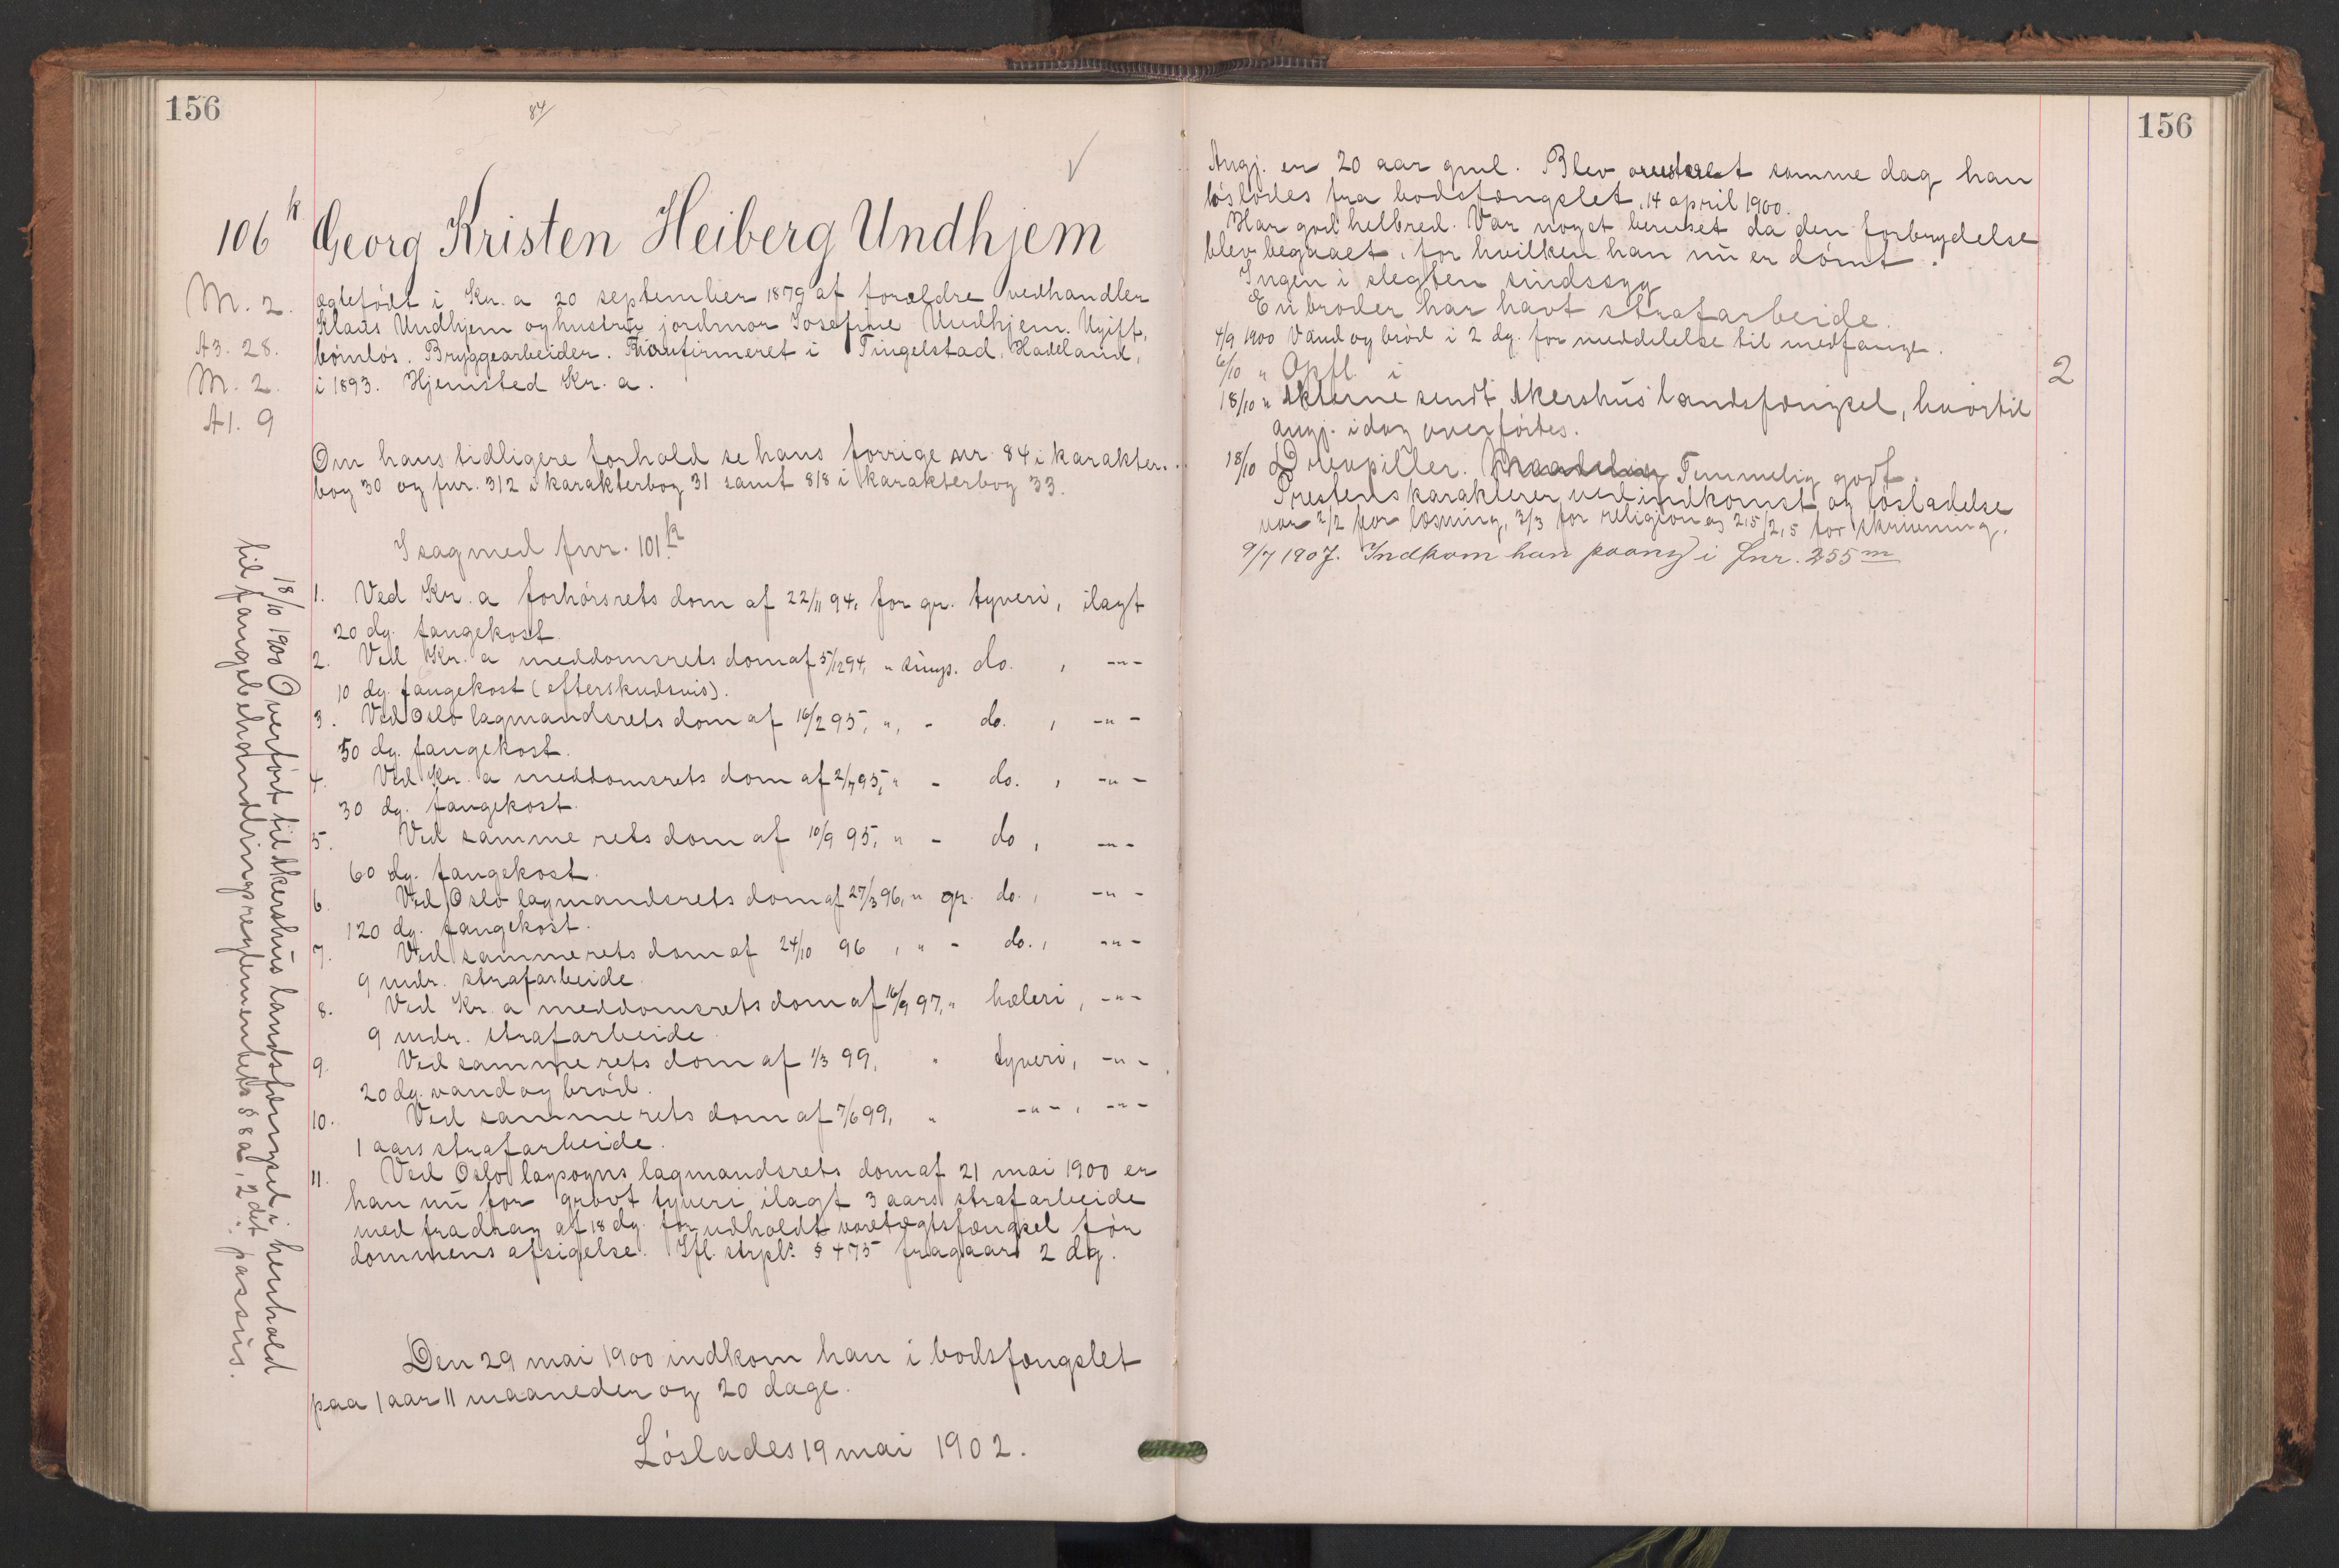 156
84/
106 k Georg Kristen Heiberg Undhjem
M. 2. ægtefødt i Kr.a 20 september 1879 af forældre vedhandler
Klaus Undhjem og hustru jordmor Josefine Undhjem. Ugift,
A3. 28. børnløs. Bryggearbeider. Konfirmeret i Tingelstad, Hadeland,
M. 2. i 1893. Hjemsted Kr.a.
A1. 9
Om hans tidligere forhold se hans forrige nr. 84 i karakter-
bog 30 og fnr. 312 i karakterbog 31 samt 818 i karakterbog 33.
I sag med fnr. 101 k
1. Ved Kr.a forhørsrets dom af 22/11 94, for gr. tyveri, ilagt
20 dg. fangekost.
2. Ved Kr.a meddomsrets dom af 5/12 94, " simp. do. , -"-
10 dg. fangekost (efterskudsvis).
3. Ved Oslo lagmandsrets dom af 16/2 95, " - do. , -"-
50 dg. fangekost.
4. Ved Kr.a meddomsrets dom af 2/7 95, " - do. , -"-
30 dg. fangekost.
5. Ved samme rets dom af 10/9 95, " - do , -"-
60 dg. fangekost.
6. Ved Oslo lagmandsrets dom af 27/3 96, " gr. do. , -"-
120 dg. fangekost.
7. Ved samme rets dom af 24/10 96 , " - do. , -"-
9 mdr. strafarbeide.
8. Ved Kr.a meddomsrets dom af 16/9 97, " hæleri , -"-
9 mdr. strafarbeide.
9. Ved samme rets dom af 1/3 99, " tyveri, -"-
20 dg. vand og brød.
10. Ved samme rets dom af 7/6 99, " -"- , -"-
1 aars strafarbeide.
11. Ved Oslo lagsogns lagmandsrets dom af 21 mai 1900 er
han nu for grovt tyveri ilagt 3 aars strafarbeide
med fradrag af 18 dg. for udholdt varetægtsfængsel før
dommens afsigelse. Ifl. strpl. § 475 fragaar 2 dg.
Den 29 mai 1900 indkom han i bodsfængslet
paa 1 aar 11 maaneder og 20 dage.
Løslades 19 mai 1902.
18/10 1900 Overført til Akershus landsfængsel i henhold
til fangebehandlingsreglementets § 8 a, 2det passus.
156
Angj. er 20 aar gml. Blev arresteret samme dag han
løslodes fra bodsfængslet, 14 april 1900.
Har god helbred. Var noget beruset da den forbrydelse
blev begaaet, for hvilken han nu er dømt.
Ingen i slegten sindssyg
En broder har havt strafarbeide.
4/9 1900 Vand og brød i 2 dg. for meddelelse til medfange.
6/10 " Opfl. i 2
18/10 " Akterne sendt Akershus landsfængsel, hvortil
angj. idag overførtes.
18/10 Drevpiller. Maadelig Temmelig godt.
Prestens karakterer ved indkomst og løsladelse
var 2/2 for læsning, 3/3 for religion og 2,5/2,5 for skrivning.
9/7 1907. Indkom han paany i fnr. 255 m